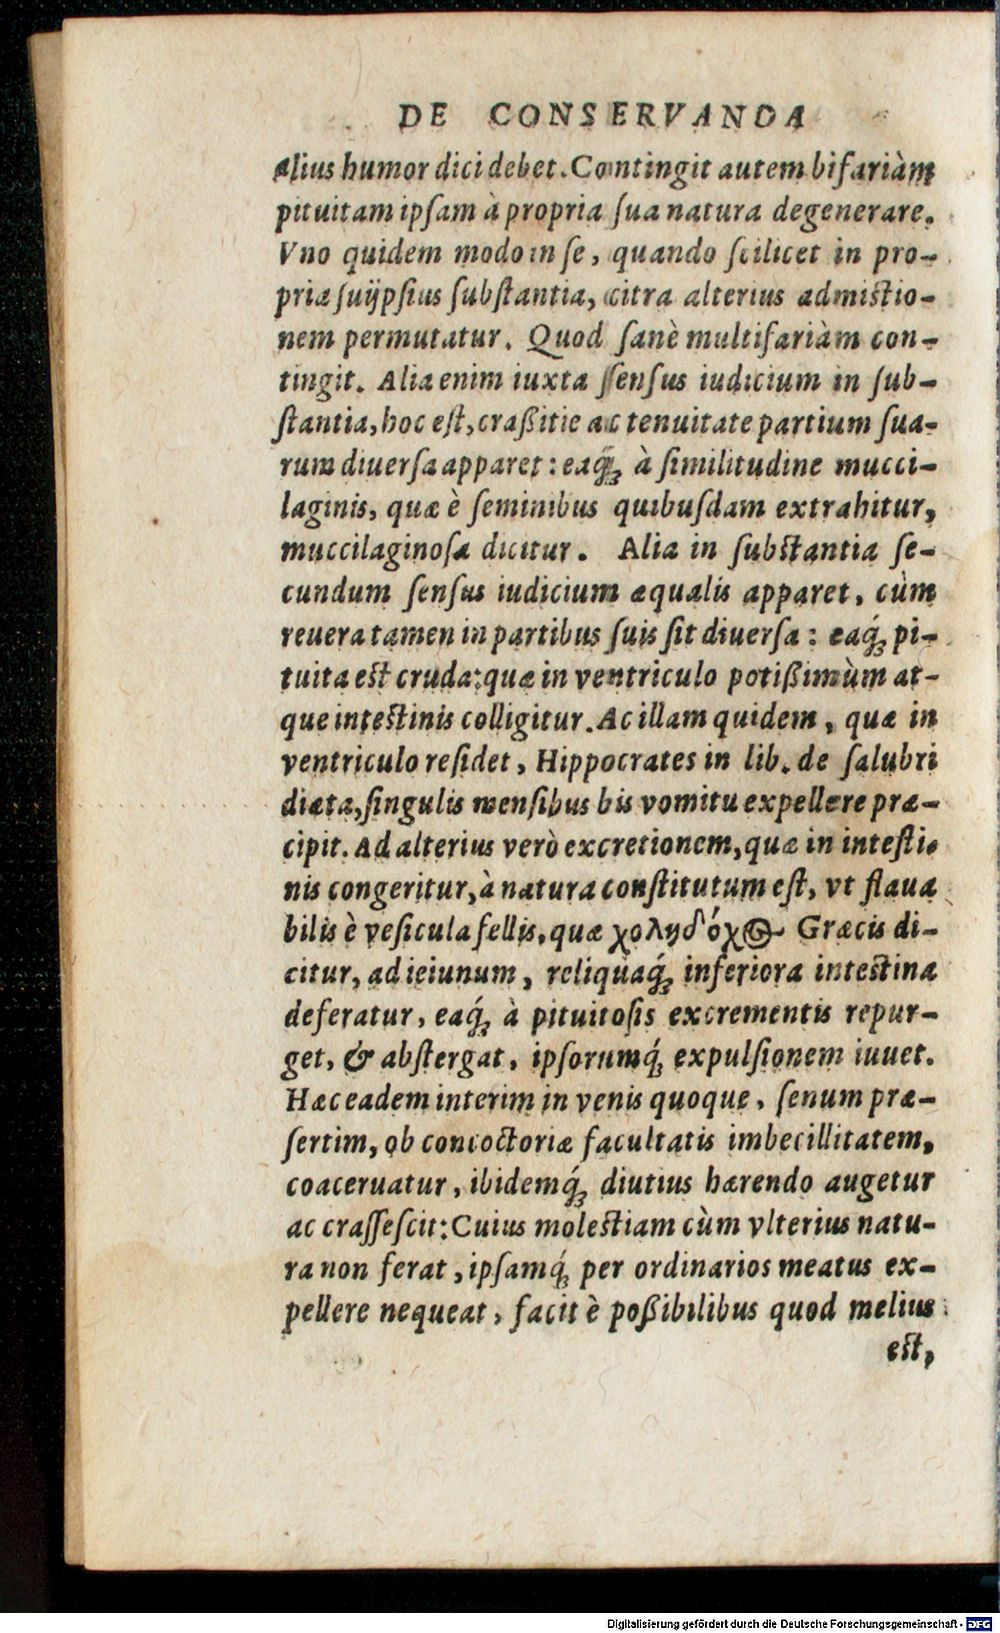 DE CONSERVANDA
alius humor dici debet. Contingit autem bifariàm
pituitam ipſam à propria ſua natura degenerare.
Vno quidem modo in ſe, quando ſcilicet in pro-
pria ſuijpſius ſubſtantia, citra alterius admiſtio-
nem permutatur. Quod ſanè multifariàm con-
tingit. Alia enim iuxta ſenſus iudicium in ſub-
ſtantia, hoc eſt, craßitie ac tenuitate partium ſua-
rum diuerſa apparet: eaq́ꝫ à ſimilitudine mucci-
laginis, quæ è ſeminibus quibuſdam extrahitur,
muccilaginoſa dicitur. Alia in ſubſtantia ſe-
cundum ſenſus iudicium æqualis apparet, cùm
reuera tamen in partibus ſuis ſit diuerſa: eaq́ꝫ pi-
tuita eſt cruda: quæ in ventriculo potißimùm at-
que inteſtinis colligitur. Ac illam quidem, quæ in
ventriculo reſidet, Hippocrates in lib. de ſalubri
diæta, ſingulis menſibus bis vomitu expellere præ-
cipit. Ad alterius verò excretionem, quæ in inteſti-
nis congeritur, à natura conſtitutum eſt, vt flaua
bilis è veſicula fellis, quæ χοληδόχος Græcis di-
citur, ad ieiunum, reliquaq́ꝫ inferiora inteſtina
deferatur, eaq́ꝫ à pituitoſis excrementis repur-
get, & abſtergat, ipſorumq́ꝫ expulſionem iuuet.
Hæc eadem interim in venis quoque, ſenum præ-
ſertim, ob concoctoriæ facultatis imbecillitatem,
coaceruatur, ibidemq́ꝫ diutius hærendo augetur
ac craſſeſcit: Cuius moleſtiam cùm vlterius natu-
ra non ferat, ipſamq́ꝫ per ordinarios meatus ex-
pellere nequeat, facit è poßibilibus quod melius
eſt,
Digitalisierung gefördert durch die Deutsche Forschungsgemeinschaft - DFG